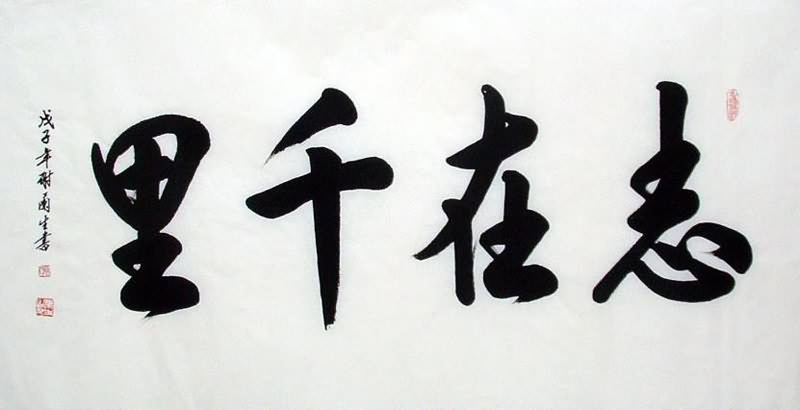 志在千里
戊子年谢勇生书